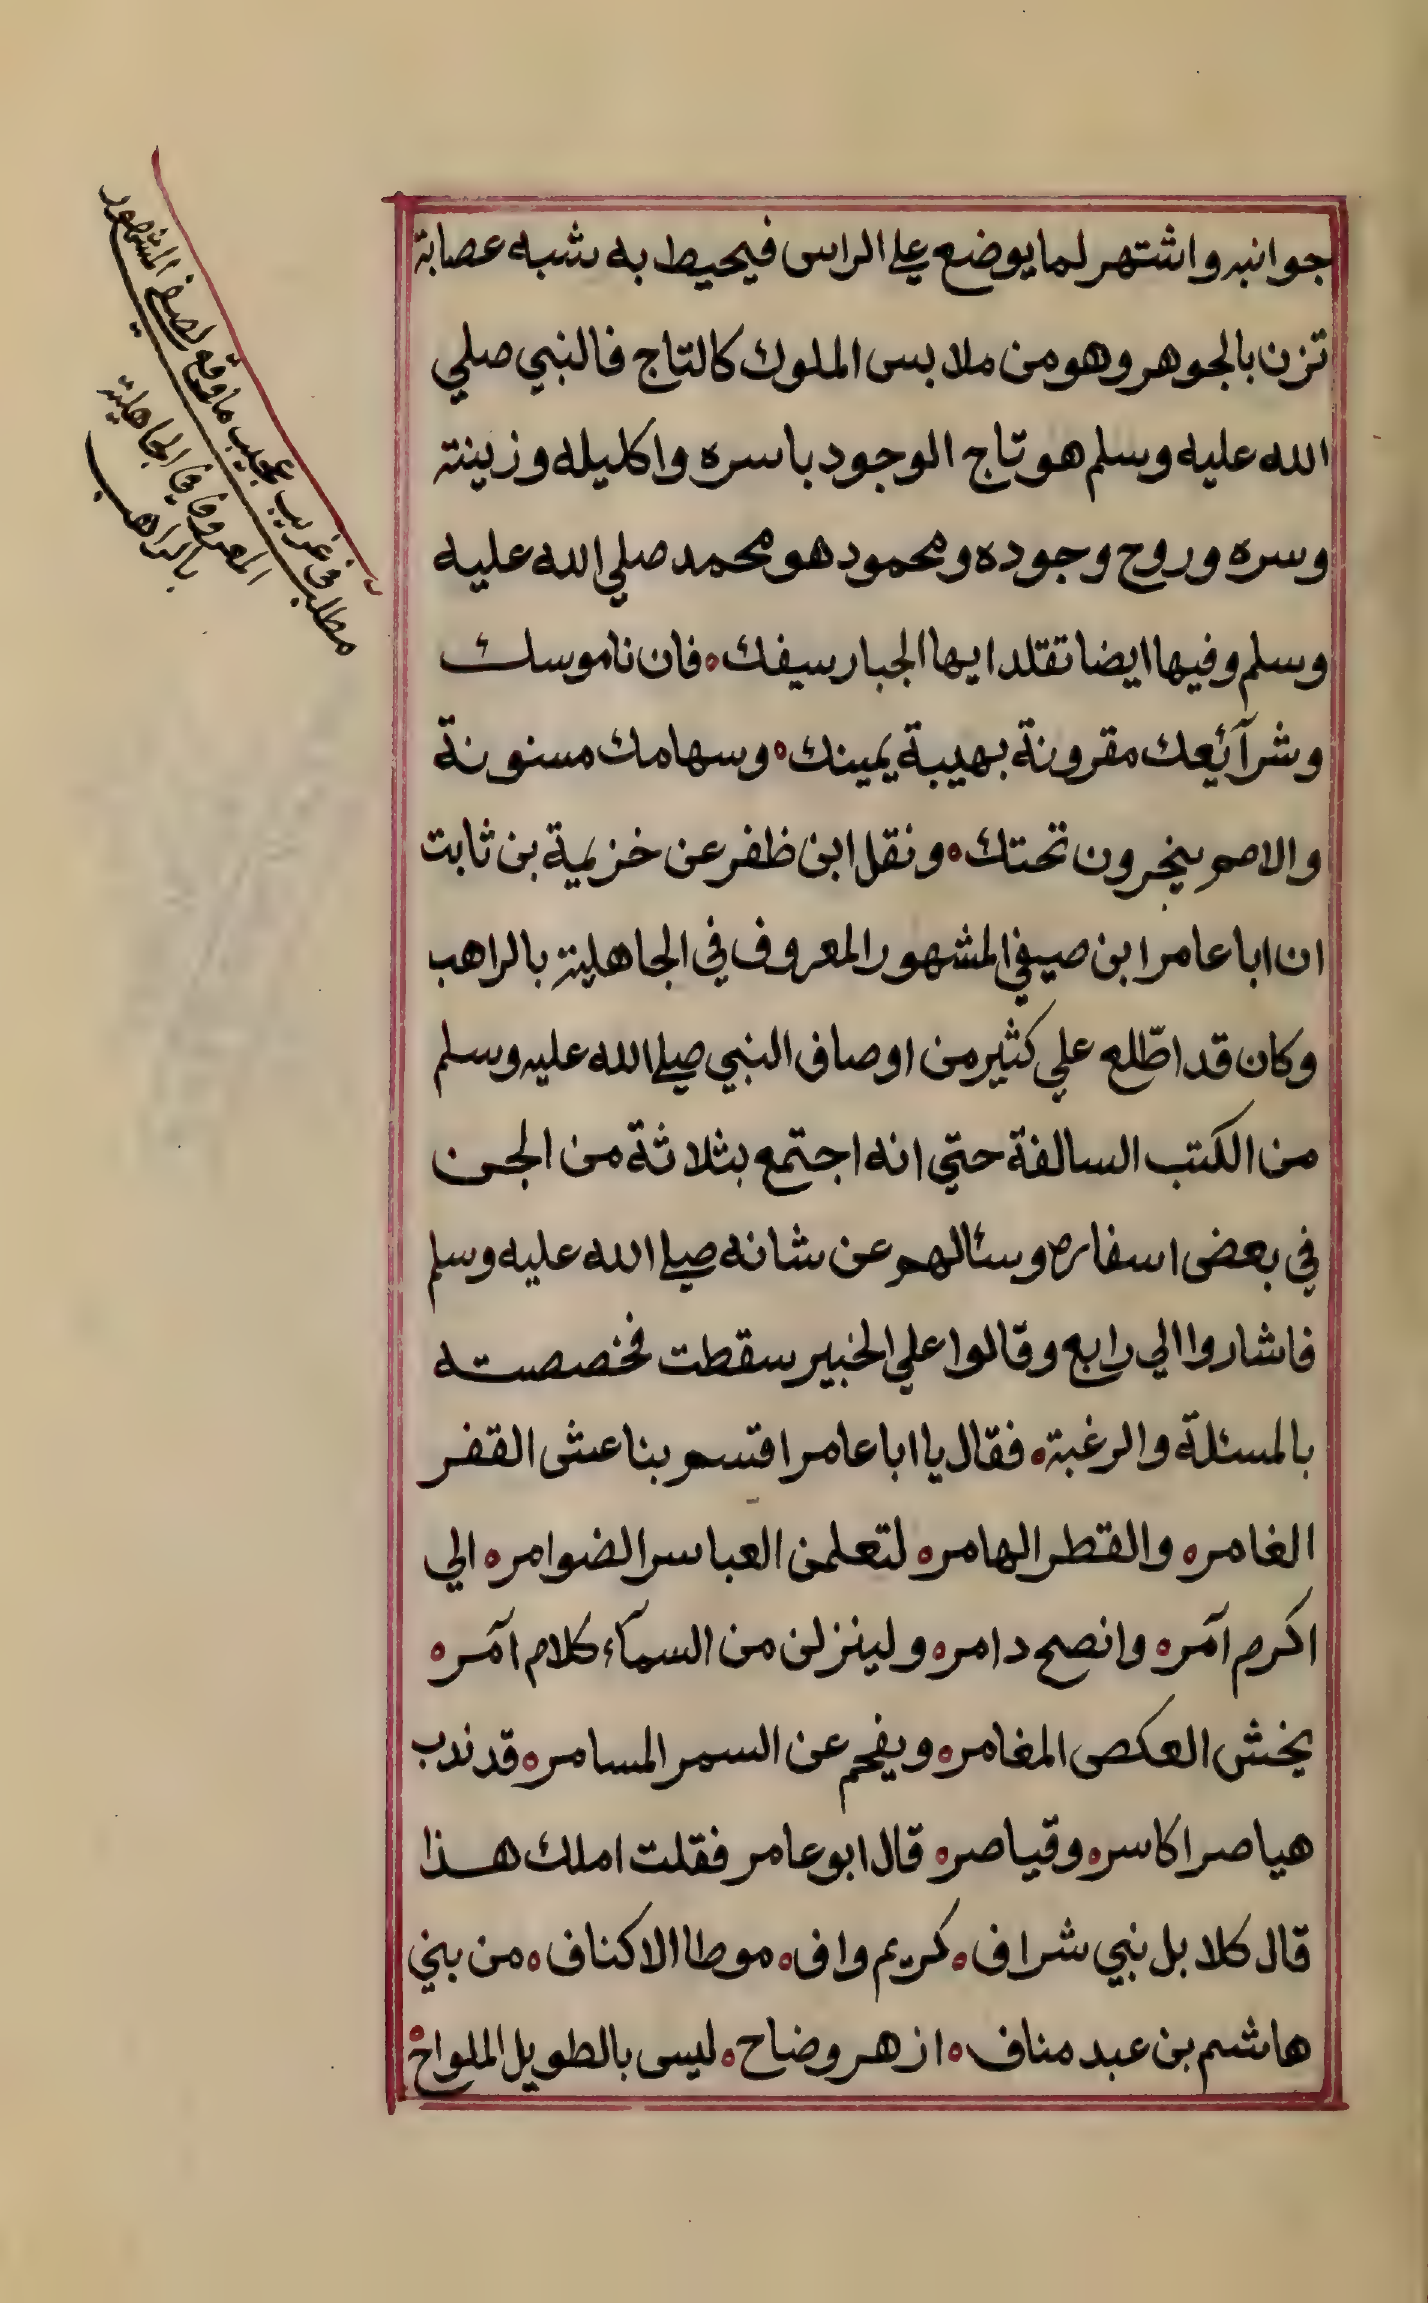 جوانبه واشتهر لما يوضع علي الراس فيحيط به شبه عصابة
تزن بالجوهر وهو من ملابس الملوك كالتاج فالنبي صلي
الله عليه وسلم هو تاج الوجود باسره واكليله وزينته
وسره وروح وجوده ومحمود هو محمد صلي الله عليه
وسلم وفيها ايضا تقلد ايها الجبار سيفك ٥ فان ناموسك
وشرآئعك مقرونة بهيبة يمينك ٥ وسهامك مسنونة
والامم يخرون تحتك ٥ ونقل ابن ظفر عن خزيمة بن ثابت
ان ابا عامر ابن صيفي المشهور المعروف في الجاهلية بالراهب
وكان قد اطّلع علي كثير من اوصاف النبي صلي الله عليه وسلم
من الكتب السالفة حتي انه اجتمع بثلاثة من الجن
في بعض اسفاره وسئالهم عن شانه صلي الله عليه وسلم
فاشاروا الي رابع وقالوا علي الخبير سقطت فخصصته
بالمسئلة والرغبة ٥ فقال يا ابا عامر اقتسم بنا عش القفر
الغامر ٥ والقطر الهامر ٥ لتعلمن العباسر الضوامر ٥ الي
اكرم آمر ٥ وانصح دامر ٥ ولينزلن من السمآء كلام آمر ٥
يخش العكص المغامر ٥ ويفحم عن السمر المسامر ٥ قد ندب
هياصر اكاسر ٥ وقياصر ٥ قال ابو عامر فقلت املك هذا
قال كلا بل نبي شراف ٥ كريم واف ٥ موطا الاكناف ٥ من بني
هاشم بن عبد مناف ٥ ازهر وضاح ٥ ليس بالطويل الملواح ٥
مطلب في غريب عجيب ما وقع لصيفي المشهور
المعروف في الجاهلية
بالراهب